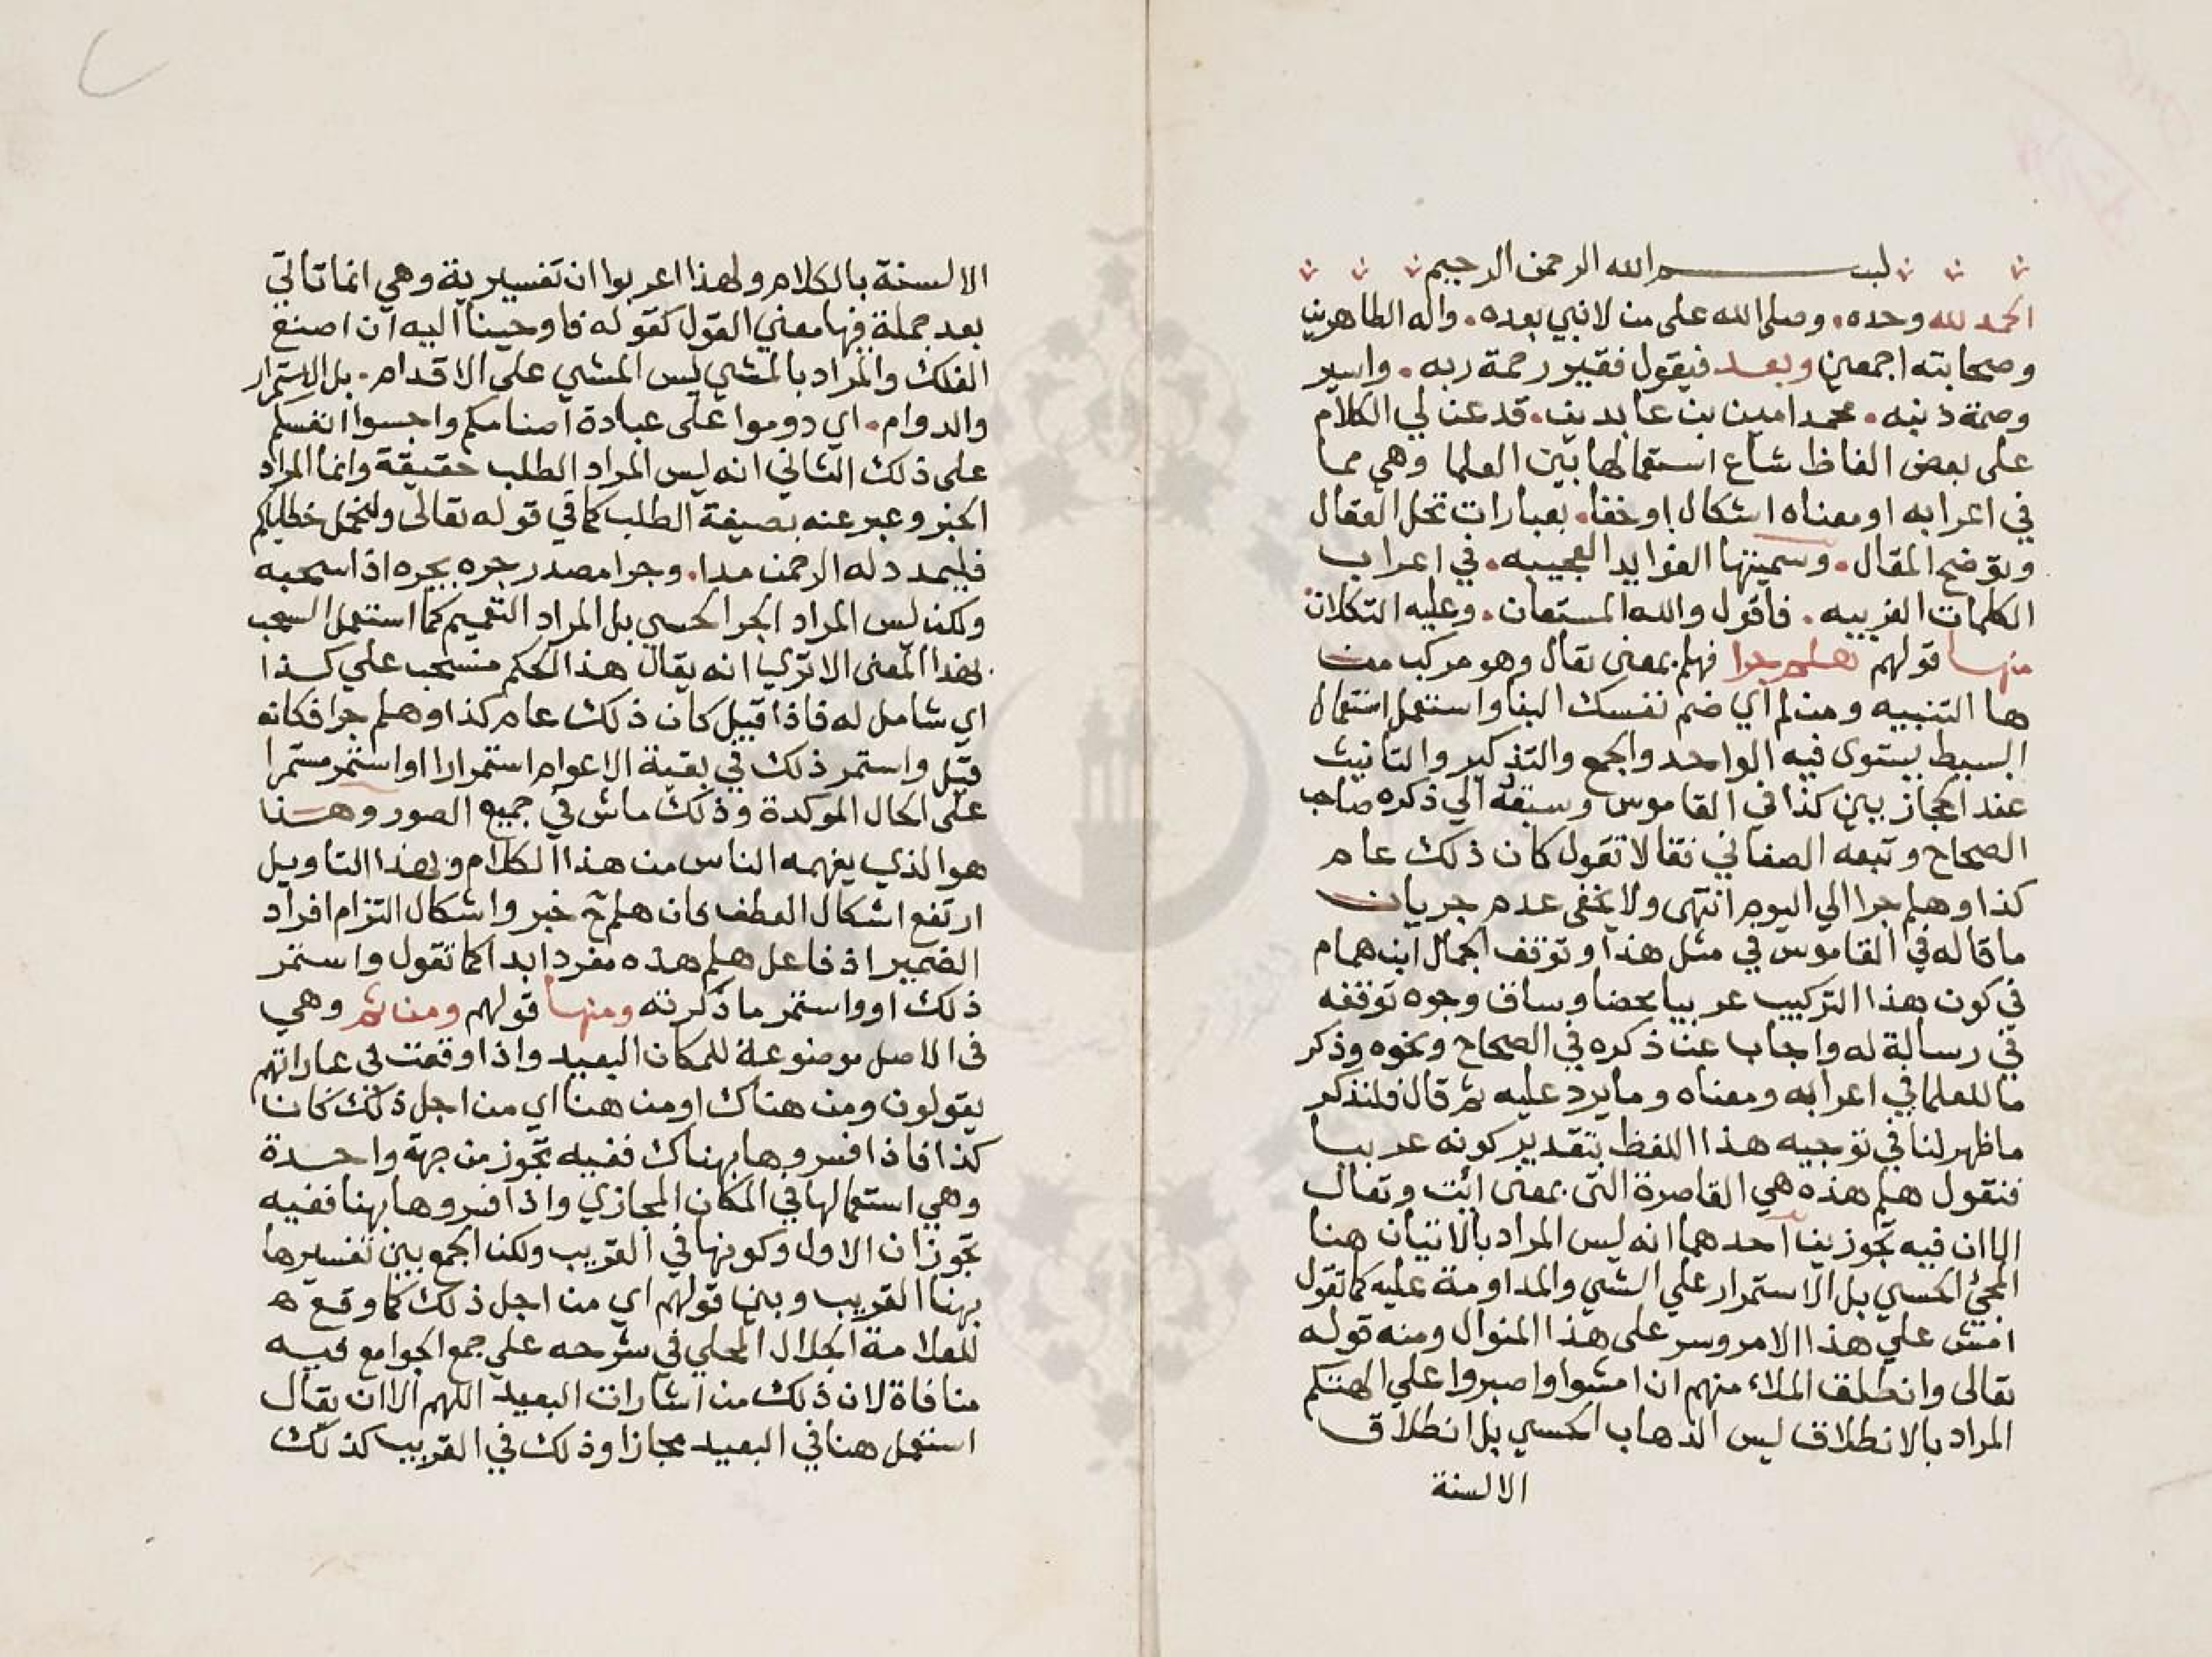 بسم الله الرحمن الرحيم
الحمد لله وحده. وصلى الله على من لا نبي بعده. واله الطاهرين
وصحابته اجمعين وبعد فيقول فقير رحمة ربه. واسير
وصمة ذنبه. محمد امين بن عابدين. قد عن لي الكلام
على بعض الفاظ شاع استعمالها بين العلما وهي مما
في اعرابه او معناه اشكال او خفا. بعبارات تحل العقال
وتوضح المقال. وسميتها الفوايد العجيبه. في اعراب
الكلمات الغريبه. فاقول والله المستعان. وعليه التكلان
منها قولهم هلم جرا فهلم بمعنى تعال وهو مركب من
ها التنبيه ومن لم اي ضم نفسك الينا واستعمل استعمال
البسيط يستوى فيه الواحد والجمع والتذكير والتانيث
عند الحجازيين كذا في القاموس وسبقه الي ذكره صاحب
الصحاح وتبعه الصغاني فقالا تقول كان ذلك عام
كذا وهلم جرا الي اليوم انتهى ولا يخفى عدم جريان
ما قاله في القاموس في مثل هذا وتوقف الجمال ابن همام
في كون هذا التركيب عربيا محضا وساق وجوه توقفه
في رسالة له واجاب عن ذكره في الصحاح ونحوه وذكر
ما للعلما في اعرابه ومعناه وما يرد عليه ثم قال فلنذكر
ما ظهر لنا في توجيه هذا اللفظ بتقدير كونه عربيا
فنقول هلم هذه هي القاصرة التى بمعنى ائت وتعال
الا ان فيه تجوزين احدهما انه ليس المراد بالاتيان هنا
المجئ الحسي بل الاستمرار علي الشي والمداومة عليه كما تقول
امش علي هذا الامر وسر على هذا المنوال ومنه قوله
تعالى وانطلق الملاء منهم ان امشوا واصبروا علي الهتكم
المراد بالانطلاق ليس الذهاب الحسي بل انطلاق
الالسنة
الالسنة بالكلام ولهذا اعربوا ان تفسيرية وهي انما تاتي
بعد جملة فيها معني القول كقوله فاوحينا اليه ان اصنع
الفلك والمراد بالمشي ليس المشي على الاقدام. بل الاستمرار
والدوام. اي دوموا على عبادة اصنامكم واحبسوا انفسكم
على ذلك الثاني انه ليس المراد الطلب حقيقة وانما المراد
الخبر وعبر عنه بصيغة الطلب كما في قوله تعالى ولنحمل خطاياكم
فليمدد له الرحمن مدا. وجرا مصدر جره يجره اذا سحبه
ولكن ليس المراد الجر الحسي بل المراد التعميم كما استعمل السحب
بهذا المعنى الا ترى انه يقال هذا الحكم منسحب علي كذا
اي شامل له فاذا قيل كان ذلك عام كذا وهلم جرا فكانه
قيل واستمر ذلك في بقية الاعوام استمرارا او استمر مستمرا
على الحال الموكدة وذلك ماش في جميع الصور وهذا
هو الذي يفهمه الناس من هذا الكلام وبهذا التاويل
ارتفع اشكال العطف فان هلم ح خبر واشكال التزام افراد
الضمير اذ فاعل هلم هذه مفرد ابدا كما تقول واستمر
ذلك او واستمر ما ذكرته ومنها قولهم ومن ثم وهي
فى الاصل موضوعة للمكان البعيد واذا وقعت في عباراتهم
يقولون ومن هناك او من هنا اي من اجل ذلك كان
كذا فاذا فسروها بهناك ففيه تجوز من جهة واحدة
وهي استعمالها في المكان المجازي واذا فسروها بهنا ففيه
تجوزان الاول وكونها في القريب ولكن الجمع بين تفسيرها
بهنا القريب وبين قولهم اي من اجل ذلك كما وقع ه
للعلامة الجلال المحلي في شرحه علي جمع الجوامع فيه
منافاة لان ذلك من اشارات البعيد اللهم الا ان يقال
استعمل هنا في البعيد مجازا وذلك في القريب كذلك